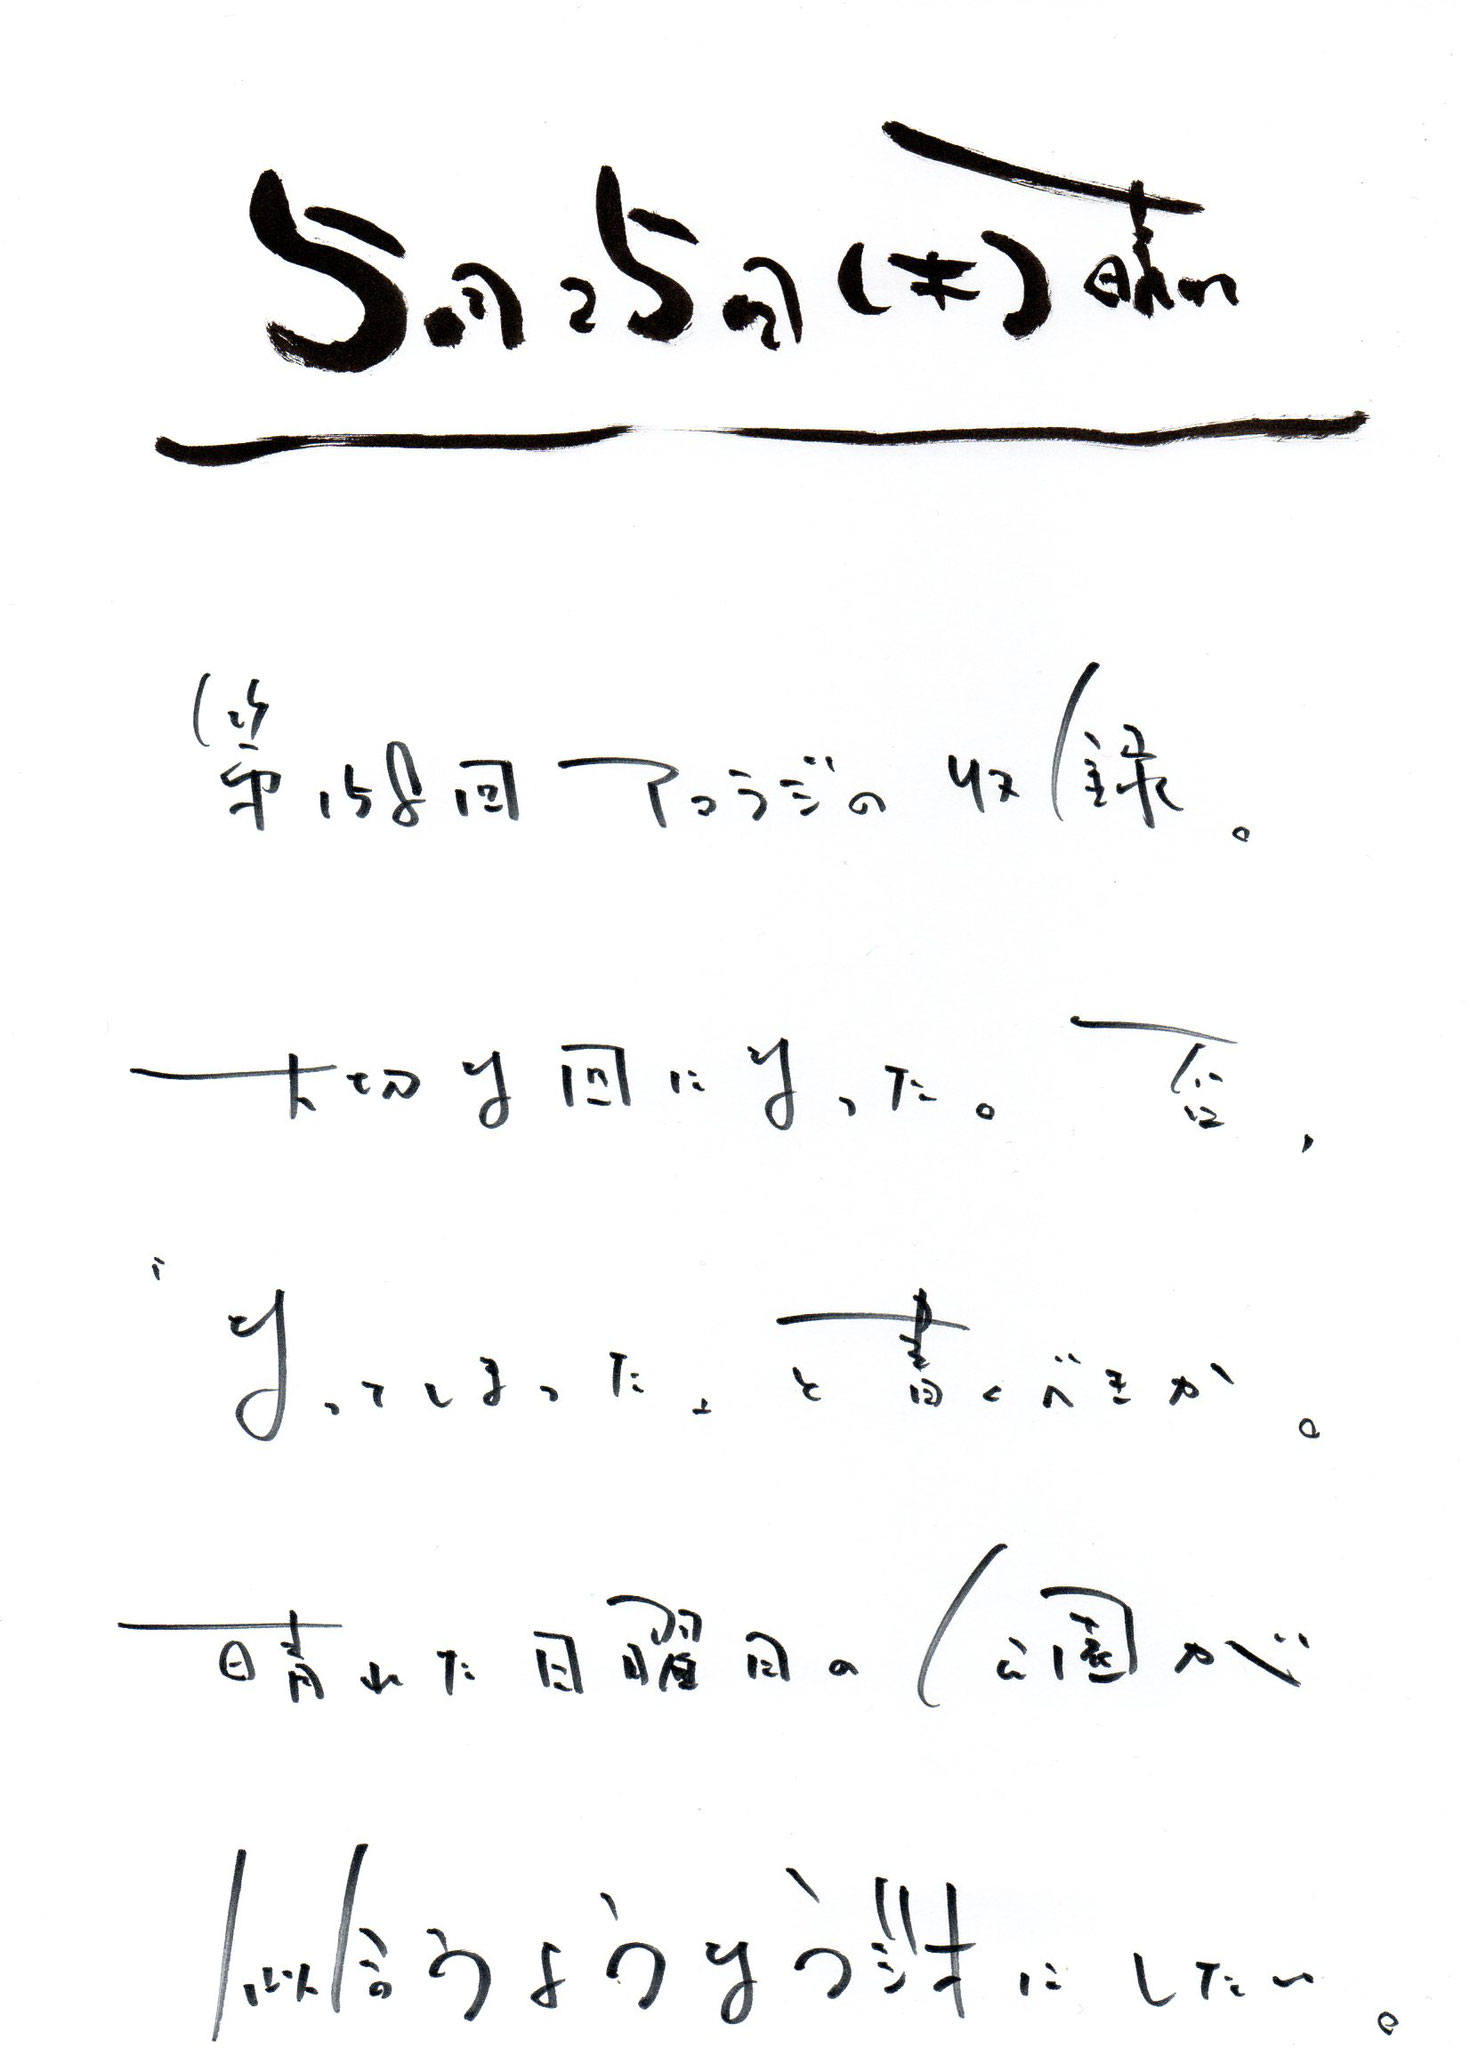 5月25日(木)晴れ
第158回アコラジの収録。
大切な回になった。否、
「なってしまった」と書くべきか。
晴れた日曜日の公園が
似合うようなラジオにしたい。